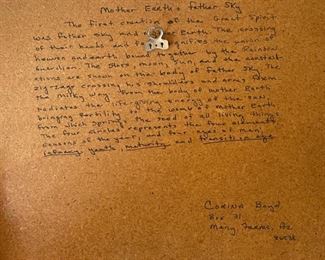 Mother Earth & Father Sky
The first creation of the Great Spirit
was Father Sky and Earth. The crossing
of their hands and feet signifies the union of
heavens and earth bound together by the Rainbow
Guardian. The stars, moon, sun, and the constell
ations are shown on the body of Father Sky. The
zig-zag crossing his shoulders and arms form
the milky way. From the body of mother Earth
radiates the life-giving energy of the sun
bringing fertility to the womb of mother Earth
from which springs the seed of all living things
The four circles represents the four elements,
seasons of the year, and four ages of man;
infancy, youth, maturity and
Corina Boyd
Box 31
Many Farms, Az
86538